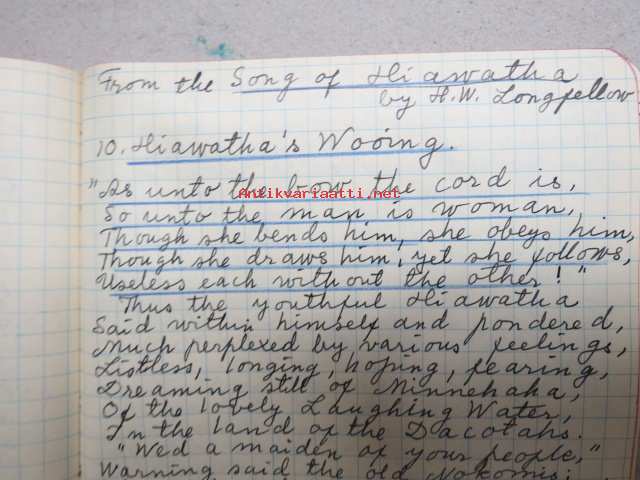 From the Song of Hiawatha
by H.W. Longfellow
10. Hiawatha's Wooing.
"As unto the bow the cord is,
Antikvariaatti.net
So unto the man is woman,
Though she bends him, she obeys him,
Though she draws him, yet she follows,
Useless each without the other!"
Thus the youthful Hiawatha
Said within himself and pondered,
Much perplexed by various feelings,
Listless, longing, hoping, fearing,
Dreaming still of Minnehaha,
Of the lovely Laughing Water,
In the land of the Dacotahs.
"Wed a maiden of your people,"
Warning said the old Nokomis;